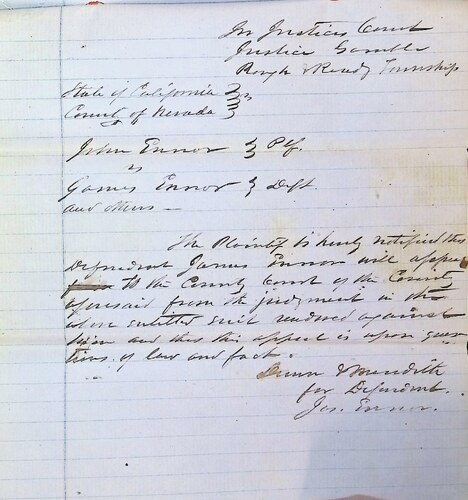 In Justices Court
Justice Gamble
Rough & Ready Township
State of California } ss
County of Nevada }
John Ennor } Plf.
vs
James Ennor } Deft.
and others —
The Plaintiff is hereby notified that
Defendant James Ennor will appeal
to the County Court of the County
aforesaid from the judgment in the
above entitled suit rendered against
him and that this appeal is upon ques
tions of law and fact.
& Meredith
for Defendant.
Jas. Ennor.